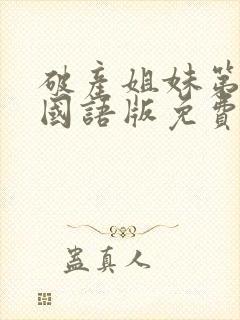 破產姐妹第
國語版免費
蓋真人